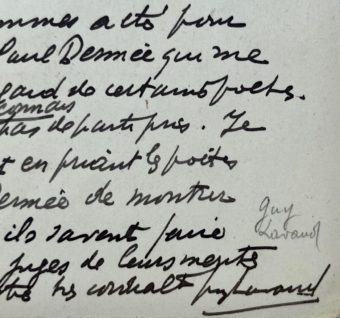 mmes acté pour
Paul Dermée qui me
gard de certains poètes.
pas de parti pris. Je
t en priant les poètes
Dermée de montrer
ils savent faire
Guy
Lavaud
juges de leurs mérites
très cordialt Guy Lavaud